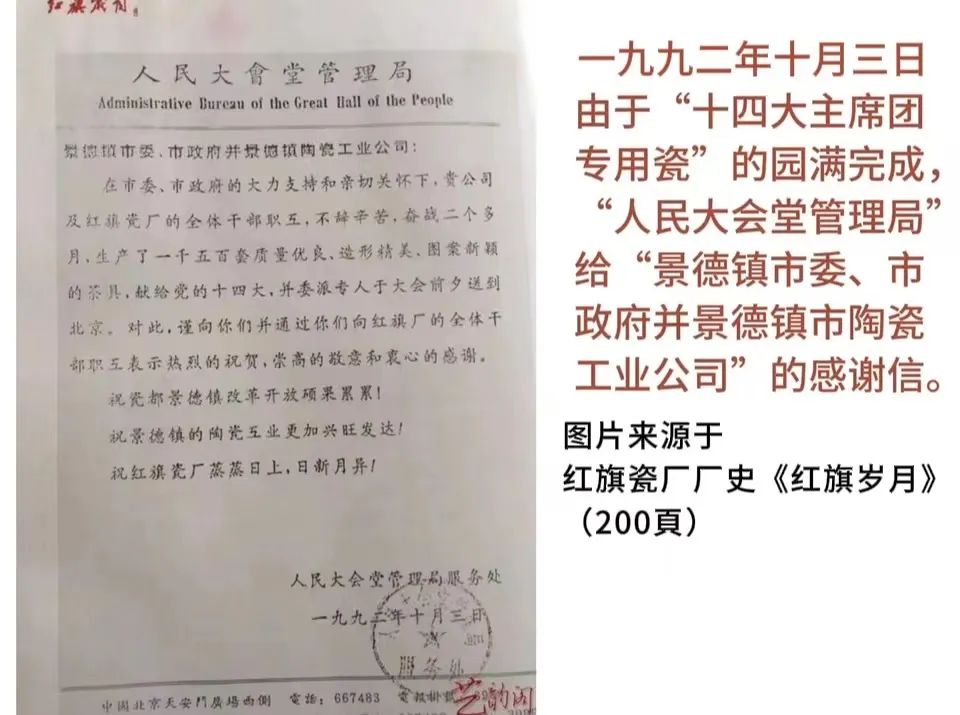 红旗岁月。
人民大會堂管理局
Administrative Bureau of the Great Hall of the People
景德镇市委、市政府并景德镇陶瓷工业公司：
在市委、市政府的大力支持和亲切关怀下，贵公司
及红旗瓷厂的全体干部职互，不辞辛苦，奋战二个多
月、生产了一千五百套质量优良、造形精美、图案新颖
的茶具，献给党的十四大，并委派专人于大会前夕送到
北京。对此，谨向你们并通过你们向红旗厂的全体干
部职互表示热烈的祝贺，崇高的敬意和衷心的感谢。
祝瓷都景德镇改革开放硕果累累！
祝景德镇的陶瓷互业更加兴旺发达！
祝红旗瓷厂蒸蒸日上，日新月异！
人民大会堂管理局服务处
一九九二年十月三日
服务处
中國北京天安門廣場西側 電話：667483 電報掛號
艺韵阁
一九九二年十月三日
由于“十四大主席团
专用瓷”的园满完成，
“人民大会堂管理局”
给“景德镇市委、市
政府并景德镇市陶瓷
工业公司”的感谢信。
图片来源于
红旗瓷厂厂史《红旗岁月》
（200頁）